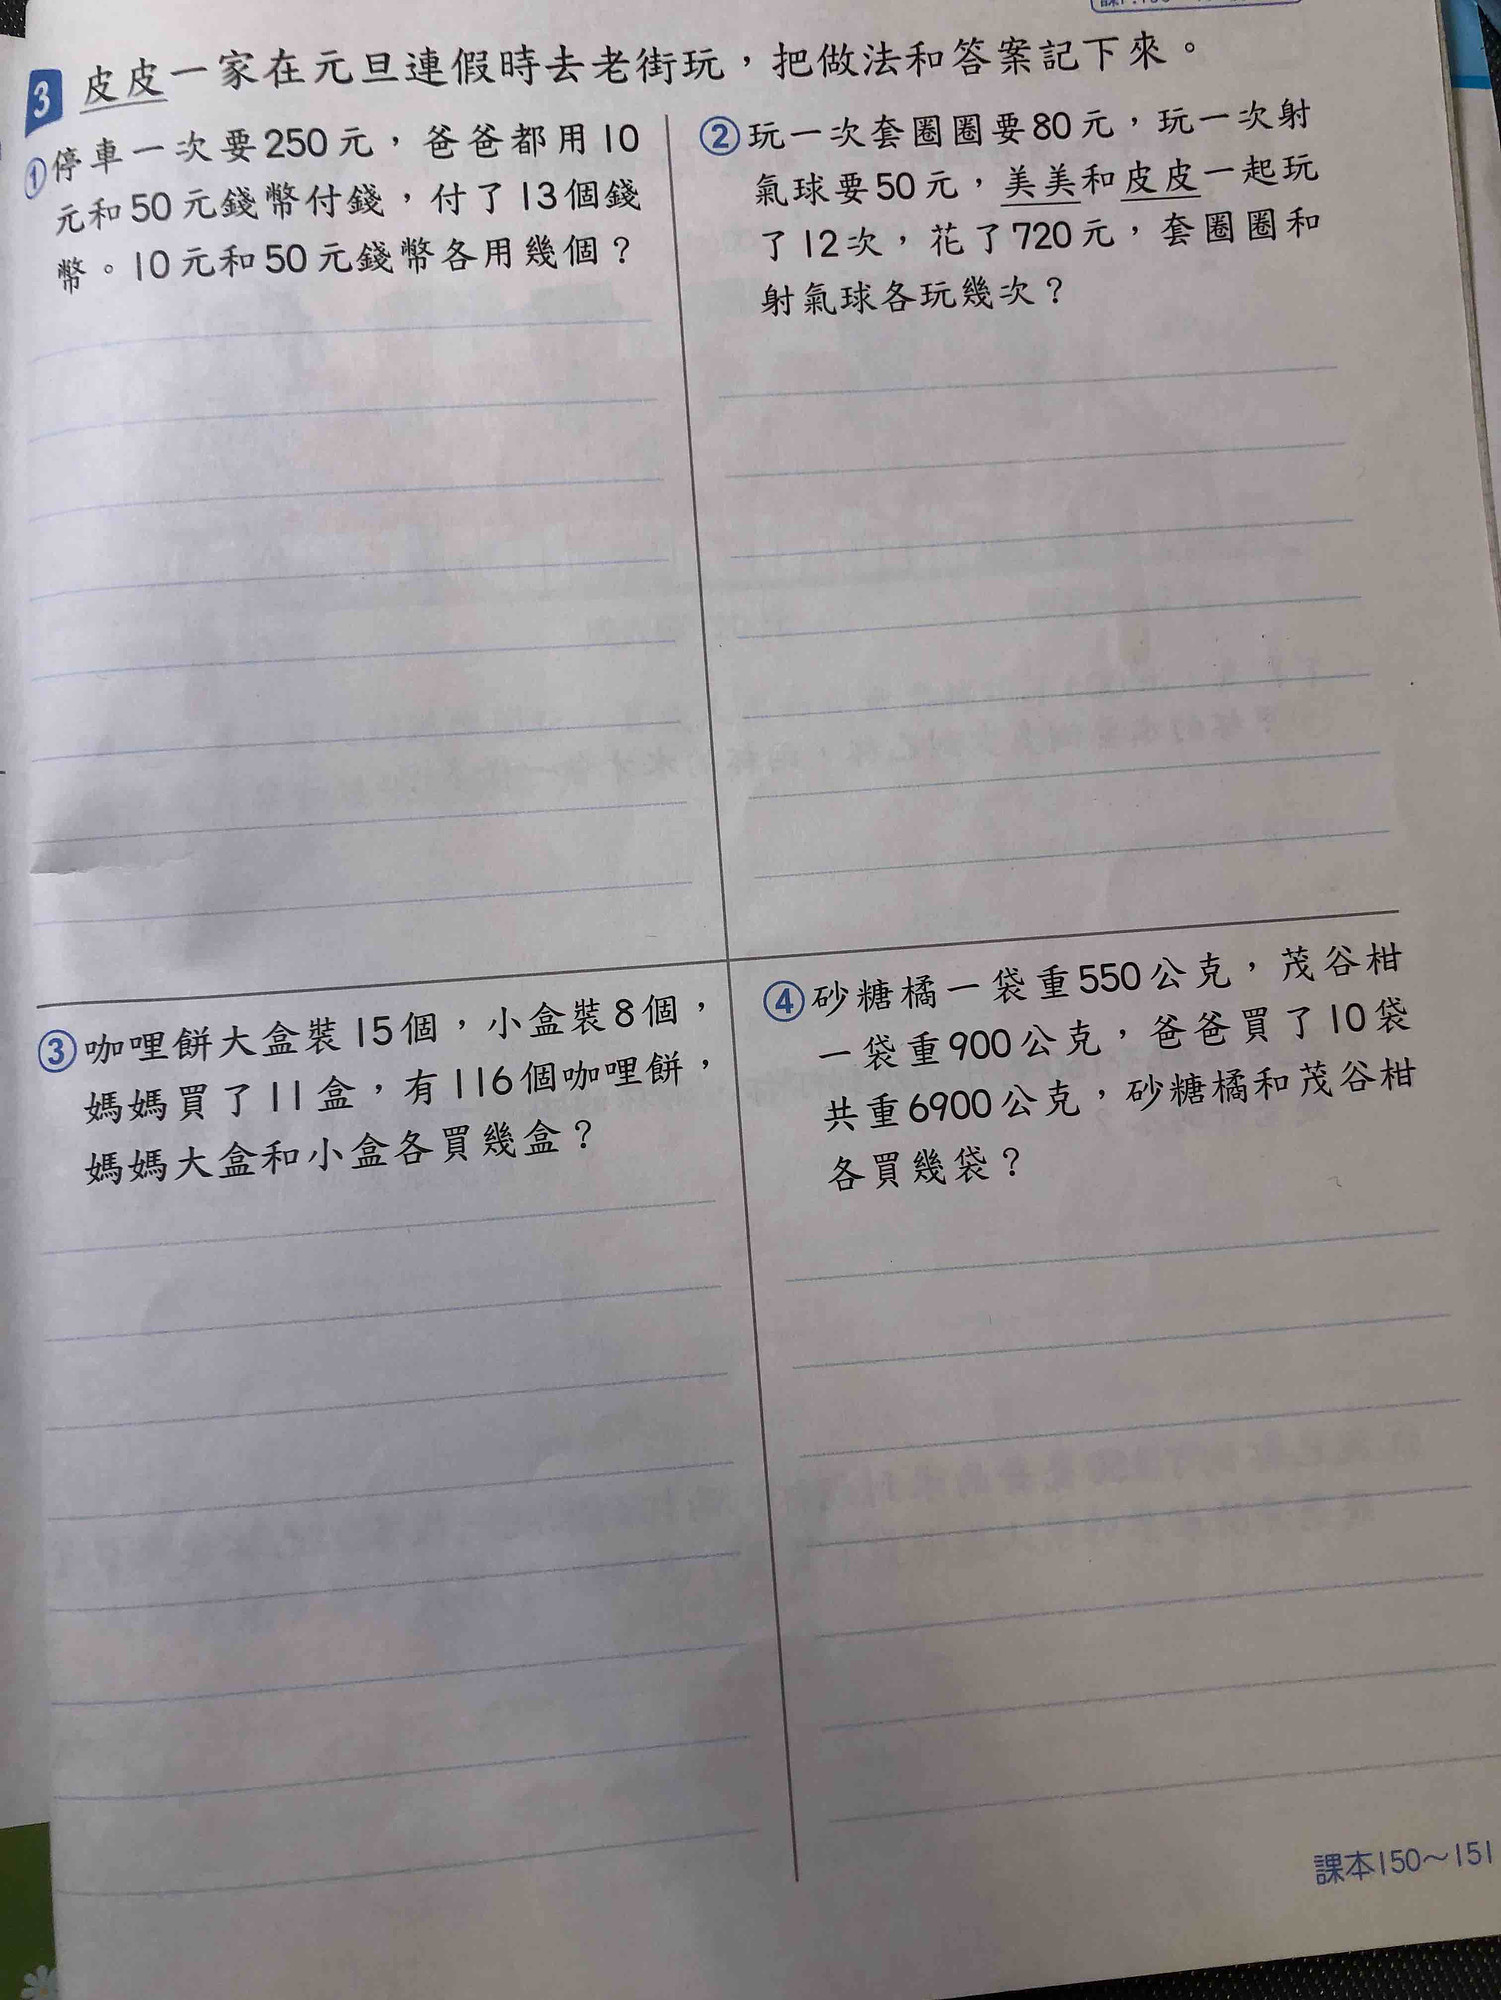 3 皮皮一家在元旦連假時去老街玩，把做法和答案記下來。
①停車一次要250元，爸爸都用10
元和50元錢幣付錢，付了13個錢
幣。10元和50元錢幣各用幾個？
②玩一次套圈圈要80元，玩一次射
氣球要50元，美美和皮皮一起玩
了12次，花了720元，套圈圈和
射氣球各玩幾次？
③咖哩餅大盒裝15個，小盒裝8個，
媽媽買了11盒，有116個咖哩餅，
媽媽大盒和小盒各買幾盒？
④砂糖橘一袋重550公克，茂谷柑
一袋重900公克，爸爸買了10袋
共重6900公克，砂糖橘和茂谷柑
各買幾袋？
課本150～151